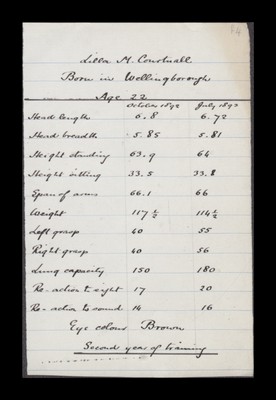 Lilla M. Coustuall
Born in Wellingborough
Age 22
October 1892 July 1893
Head length 6.8 6.72
Head breadth 5.85 5.81
Height standing 63.9 64
Height sitting 33.5 33.8
Span of arms 66.1 66
Weight 117 ½ 114 ½
Left grasp 40 55
Right grasp 40 56
Lung capacity 150 180
Re-action to sight 17 20
Re-action to sound 14 16
Eye colour Brown
Second year of training